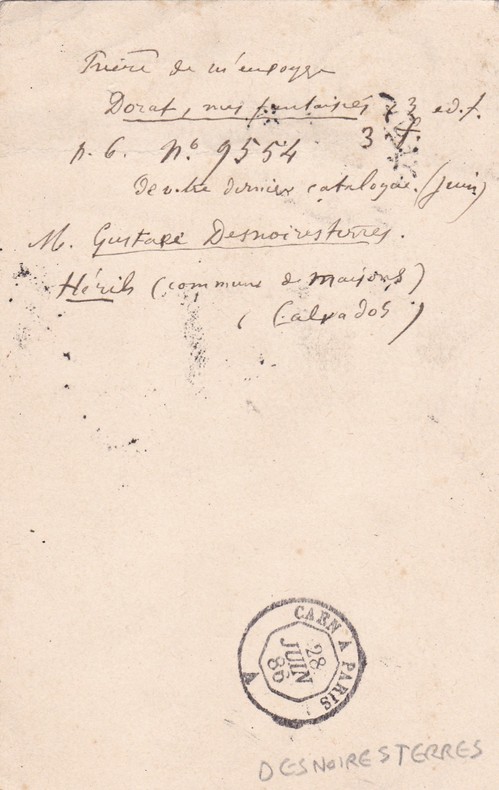 Prière de m'envoyer
Dorat, mes fantaisies 3 ed.f.
3 f.
p. 6. Nº 9554
de votre dernier catalogue. (juin)
M. Gustave Desnoiresterres.
Hérils (commune de maisons)
(Calvados)
CAEN A PARIS
28
JUIN
86
A
DESNOIRESTERRES